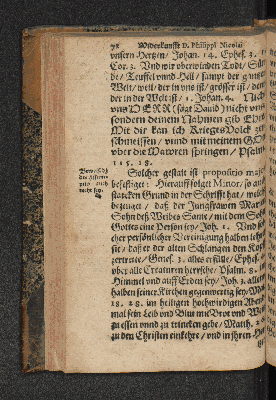 72 Widerkunfft D. Philippi Nicolai
unsern Hertzen/ Johan. 14. Ephes. 3. 1.
Cor. 3. Und wir uberwinden Todt/ Sün
be/ Teuffel und Hell/ sampt der gantzen
Welt/ weil/ der in uns ist/ grösser ist/ denn
der in der Welt ist/ 1. Johan. 4. Nicht
uns HERR (sagt David) nicht uns
sondern deinem Nahmen gib Ehre
Mit dir kan ich Kriegs Volck zer
schmeissen/ und mit meinem GO
uber die Mawren springen/ Psalm
115. 18.
Solcher gestalt ist propositio major
befestiget: Hierauff folget Minor/ so auch
starcken Grund in der Schrifft hat/ welche
bezeuget/ daß der Jungfrawen Marien
Sohn deß Weibes Same/ mit dem Sohn
Gottes eine Person sey/ Joh. 1. Und sol
cher persönlicher Vereinigung halben
sie/ daß er der alten Schlangen den Kopff
zertrete/ Genes. 3. alles erfülle/ Ephes.
uber alle Creaturen herrsche/ Psalm. 8. im
Himmel und auff Erden sey/ Joh. 3. allent
halben seiner Kirchen gegenwertig sey/ Matth.
18. 28. im heiligen hochwirdigen Abend
mal sein Leib und Blut mit Brot und Wein
zu essen und zu trincken gebe/ Matth. 26.
zu den Christen einkehre/ und in ihren Her